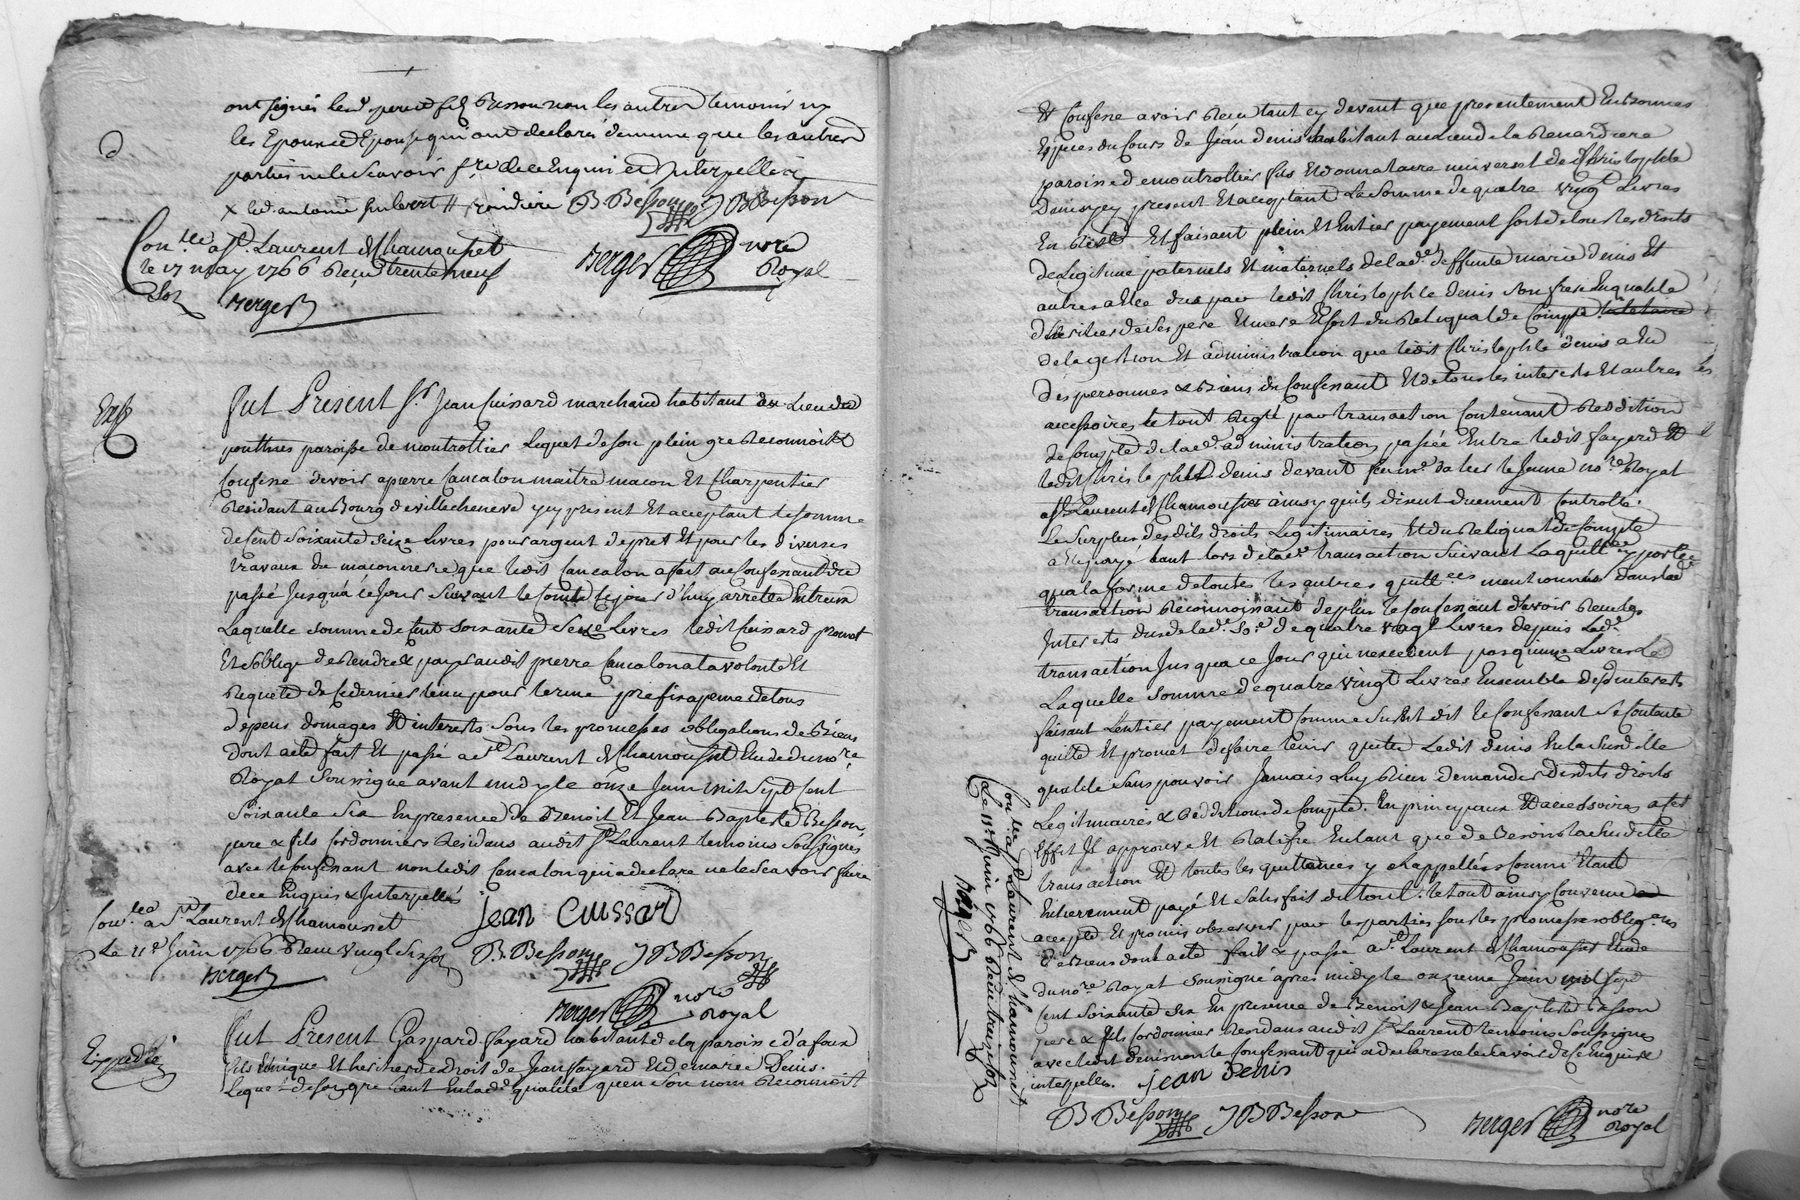 ont signés led pere et fils Besson non les autres temoins ny
les Epoux et Epouse qui ont declarés de meme que les autres
parties ne le scavoir fre de ce Enquis et Interpellés
x led antoine Imbert # Besson J B Besson
Conllé a St. Laurent de Chamousset
le 17 may 1766 Reçu trente neuf
Sols Berger
Berger nore
Royal
Exp
Fut Present Sr Jean Cuissard marchand habitant du Lieu des
paroisse de montrottier Lequel de son plein gré Reconnoit et
Confesse devoir a pierre Cancalon maitre macon Et Charpentier
Residant au Bourg de villecheneve y present Et acceptant la somme
de Cent Soixante Seize Livres pour argent de pret Et pour les diverses
travaux de maconnerie que ledit Cancalon a fait au Confessant du
passé Jusqu'a ce Jour Suivant le Compte ce jour d'huy arretté Entreux
Laquelle somme de Cent Soixante Seize Livres ledit Cuissard promet
Et s'oblige de Rendre & payer audit pierre Cancalon a la volonté Et
Requete de Ce dernier tenu pour terme prefix a peine de tous
depens domages Et interests Sous les promesses obligations de Biens
Dont acte fait Et passé a St Laurent de Chamousset Etude du nore
Royal Soussigné avant midy le onze Juin Mil Sept Cent
Soixante Six En presence de Benoit Et Jean Baptiste Besson,
pere & fils Cordonniers Residans audit St Laurent temoins Soussignés
avec le Confessant non ledit Cancalon qui a declaré ne le Scavoir faire
de ce Enquis & Interpellés
Jean Cuissard
Conlleé a St Laurent de Chamousset
Le 11e Juin 1766 Reçu vingt six sols
Berger
B. Besson J B Besson
Berger nore
Royal
Expedié
Fut Present Gaspard fayard habitant de la paroisse d'afoux
fils Unique Et heritier de droit de Jean fayard Et de marie Denis.
Lequel de son gré tant En lad. qualité qu'en Son nom Reconnoit
Et Confesse avoir Reçu tant cy devant que presentement En Bonnes
Especes du Cours de Jean denis habitant au Lieu de la Renardiere
paroisse de montrottier fils Et donnataire universel de Christophle
Denis y present Et acceptant La Somme de quatre vingt Livres
En Reste Et faisant plein Et Entier payement soit de tous les droits
de Legitime paternels Et maternels de lad.e deffunte marie denis Et
autres a Elle dus par ledit Christophle denis son frere En qualité
d'heritier de Ses pere Et mere Et soit du Reliquat de Compte
de la gestion Et administration que ledit Christophle denis a Eu
des personnes & Biens du Confessant Et de tous les interests Et autres
accessoires, le tout Reglé par transaction Contenant Reddition
de Compte de lad.e administration passée Entre ledit fayard Et
ledit Christophle denis devant le Jeune nore Royal
a St Laurent de Chamousset ainsy qu'ils disent duement Controllé.
Le Surplus desdits droits Legitimaires Et du Reliquat de Compte
a Eté payé tant lors de lad.e transaction Suivant Laquittce y portée
qu'a la forme de toutes les autres quittces mentionnés dans lad
transaction Reconnoissant de plus le Confessant d'avoir Reçu les
Interests dus de lad.e Sô.e de quatre vingt Livres depuis Lad.e
transaction Jusqu'a ce Jour qui n'excedent pas quinze Livres
Laquelle somme de quatre vingt Livres Ensemble desd interests
faisant L'entier payement Comme Susest dit le Confessant Se Contente
quitte Et promet de faire tenir quitte Ledit denis En la Susditte
qualité Sans pouvoir Jamais Luy Rien demander desdits droits
Legitimaires & Redditions de Compte. En principaux Et accessoires a cet
Effet Il approuve Et Ratifie En tant que de Besoin la Susditte
transaction Et toutes les quittances y Rappellées Comme Etant
Entierement payé Et Satisfait du tout. le tout ainsy Convenu
accepté Et promis observer par les parties sous les promesses obligons
de Biens dont acte fait & passé a St Laurent de Chamousset Etude
du nore Royal Soussigné apres midy le onzieme Juin mil sept
Cent Soixante Six En presence de Benoit & Jean Baptiste Besson
pere & fils Cordonniers Residans audit St Laurent temoins Soussignés
avec ledit denis non le Confessant qui a declaré ne le scavoir de ce Enquis &
interpellé. Jean Denis
B Besson J B Besson
Berger nore
Royal
Conllé a St Laurent de Chamousset
Le 11e Juin 1766 Reçu treize sols
Berger